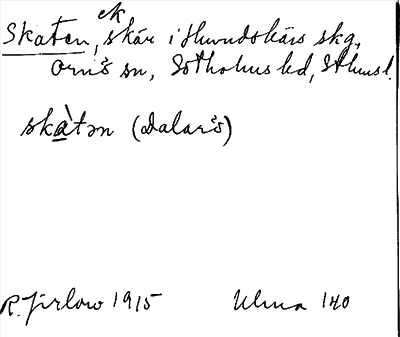 Skaten, ek skär i Huvudskärs skg,
Ornö sn, Sotholms hd, Sthmsl.
skàtən (Dalarö)
R. Jirlow 1915 Ulma 140